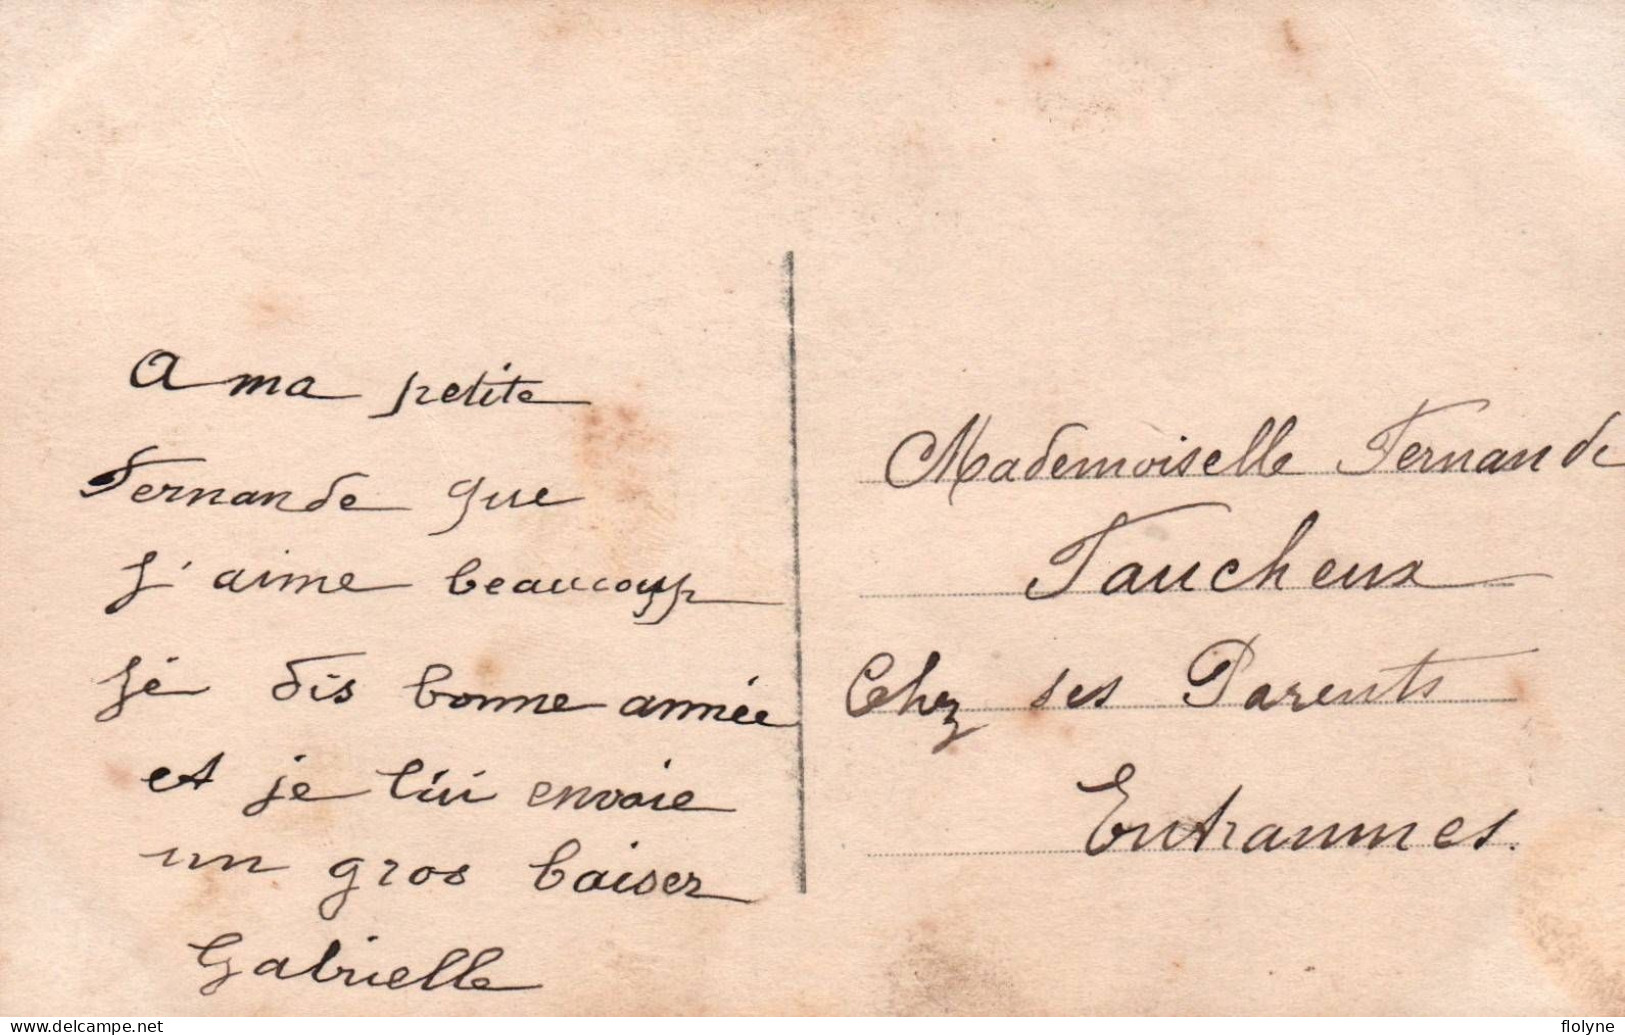 A ma petite
Fernande que
j'aime beaucoup
je dis bonne année
et je lui envoie
un gros baiser
Gabrielle
Mademoiselle Fernande
Faucheux
Chez ses Parents
Entrammes.
delcampe.net
flolyne